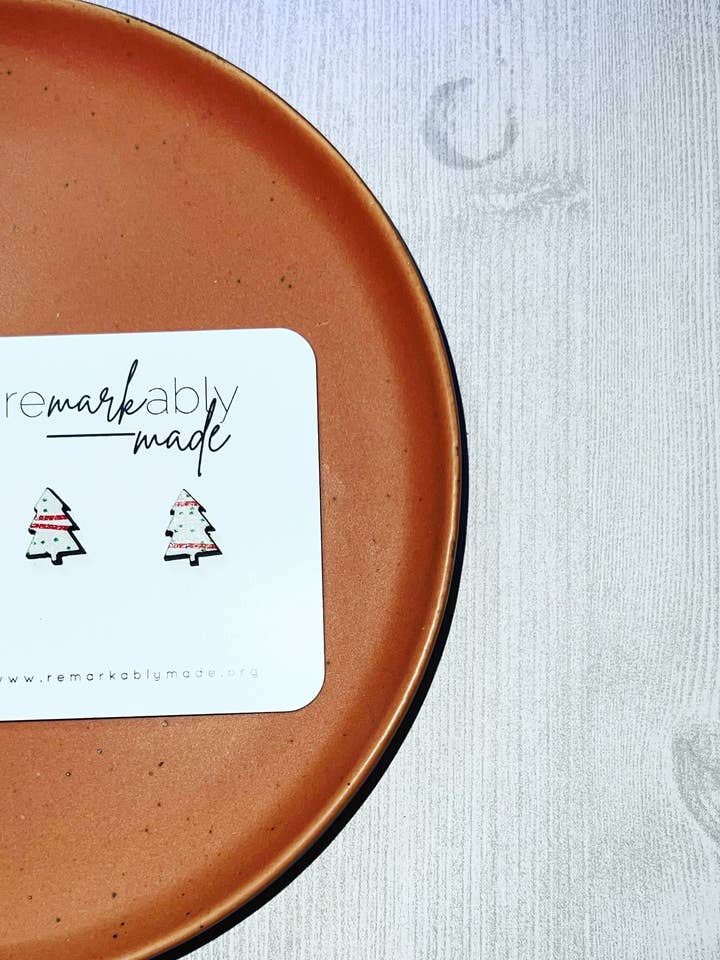 remarkably
made
www.remarkablymade.org